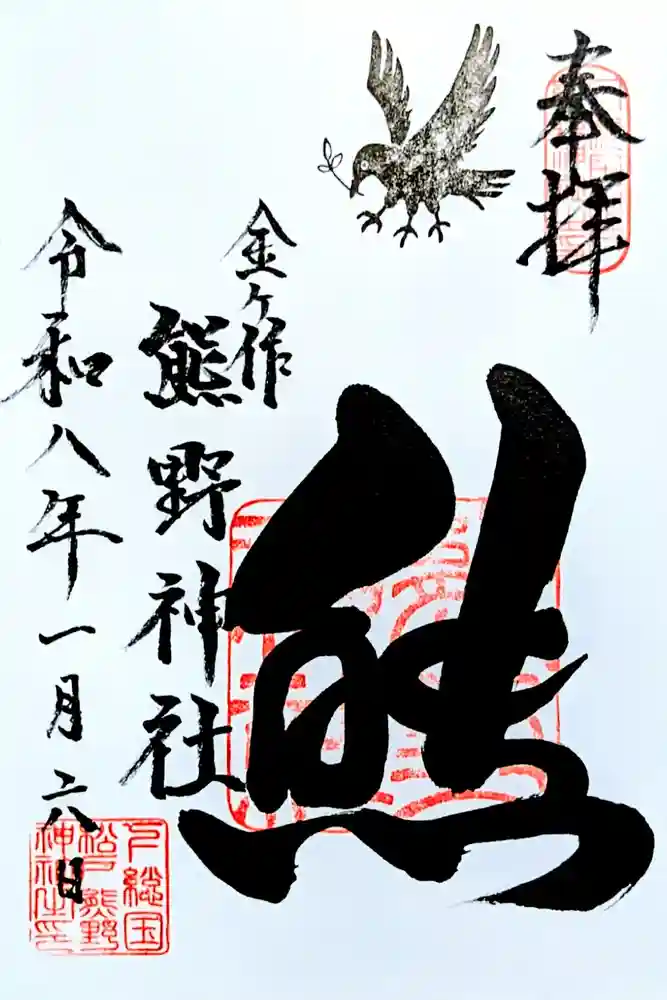 奉拝
熊
金ケ作
熊野神社
令和八年一月二八日
下総国
松戸熊野
神社之印